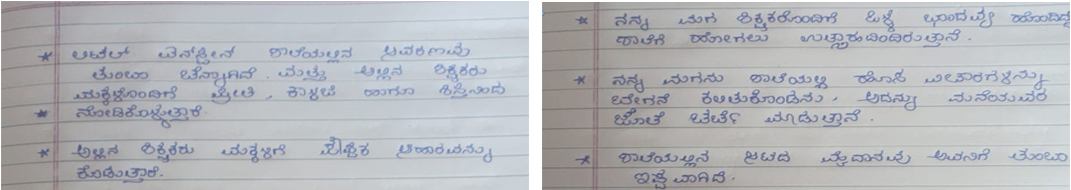 * ಅಟಲ್ ಟಿನ್‌ಸ್ಟೀನ ಶಾಲೆಯಲ್ಲಿನ ಆವರಣವು
ತುಂಬಾ ಚೆನ್ನಾಗಿದೆ. ಮತ್ತು ಅಲ್ಲಿನ ಶಿಕ್ಷಕರು
ಮಕ್ಕಳೊಂದಿಗೆ ಪ್ರೀತಿ, ಕಾಳಜಿ ಹಾಗೂ ಶಿಸ್ತಿನಿಂದ
* ನೋಡಿಕೊಳ್ಳುತ್ತಾರೆ.
* ಅಲ್ಲಿನ ಶಿಕ್ಷಕರು ಮಕ್ಕಳಿಗೆ ಪೌಷ್ಟಿಕ ಆಹಾರವನ್ನು
ಕೊಡುತ್ತಾರೆ.
* ನನ್ನ ಮಗ ಶಿಕ್ಷಕರೊಂದಿಗೆ ಒಳ್ಳೆ ಭಾಂದವ್ಯ ಹೊಂದಿದ್ದು
ಶಾಲೆಗೆ ಹೋಗಲು ಉತ್ಸುಕದಿಂದಿರುತ್ತಾನೆ.
* ನನ್ನ ಮಗನು ಶಾಲೆಯಲ್ಲಿ ಹೊಸ ವಿಚಾರಗಳನ್ನು
ಬೇಗನೆ ಕಲಿತುಕೊಂಡನು, ಅದನ್ನು ಮನೆಯವರ
ಜೊತೆ ಚರ್ಚೆ ಮಾಡುತ್ತಾನೆ.
* ಶಾಲೆಯಲ್ಲಿನ ಆಟದ ಮೈದಾನವು ಅವನಿಗೆ ತುಂಬಾ
ಇಷ್ಟವಾಗಿದೆ.